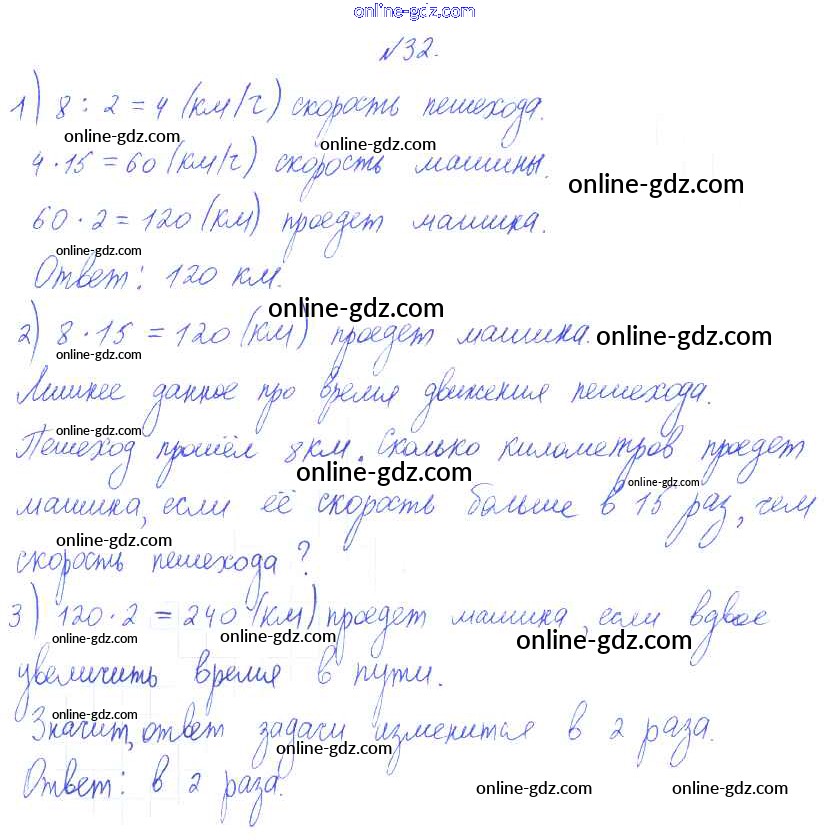 online-gdz.com
№32.
1) 8 : 2 = 4 (км/ч) скорость пешехода.
online-gdz.com online-gdz.com
4 · 15 = 60 (км/ч) скорость машины.
online-gdz.com
60 · 2 = 120 (км) проедет машина.
online-gdz.com
Ответ: 120 км.
online-gdz.com
2) 8 · 15 = 120 (км) проедет машина.
online-gdz.com online-gdz.com
Лишнее данное про время движения пешехода.
online-gdz.com
Пешеход прошёл 8 км. Сколько километров проедет
online-gdz.com online-gdz.com
машина, если её скорость больше в 15 раз, чем
online-gdz.com
скорость пешехода?
3) 120 · 2 = 240 (км) проедет машина, если вдвое
online-gdz.com online-gdz.com online-gdz.com
увеличить время в пути.
online-gdz.com
Значит, ответ задачи изменится в 2 раза.
online-gdz.com
Ответ: в 2 раза.
online-gdz.com online-gdz.com